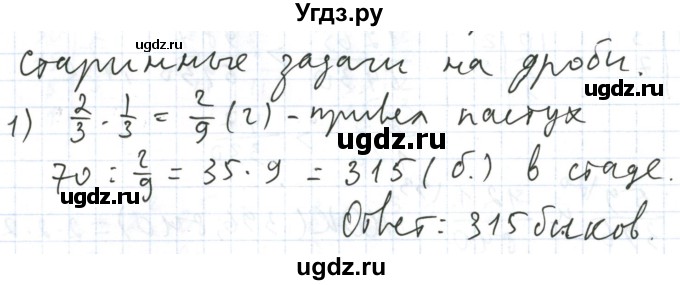 Угдз.ру
Старинные задачи на дроби.
ugdz.ru ugdz.ru
1) 2/3 · 1/3 = 2/9 (г) - привел пастух
ugdz.ru ugdz.ru
70 : 2/9 = 35 · 9 = 315 (б.) в стаде.
ugdz.ru ugdz.ru
Ответ: 315 быков.
ugdz.ru ugdz.ru